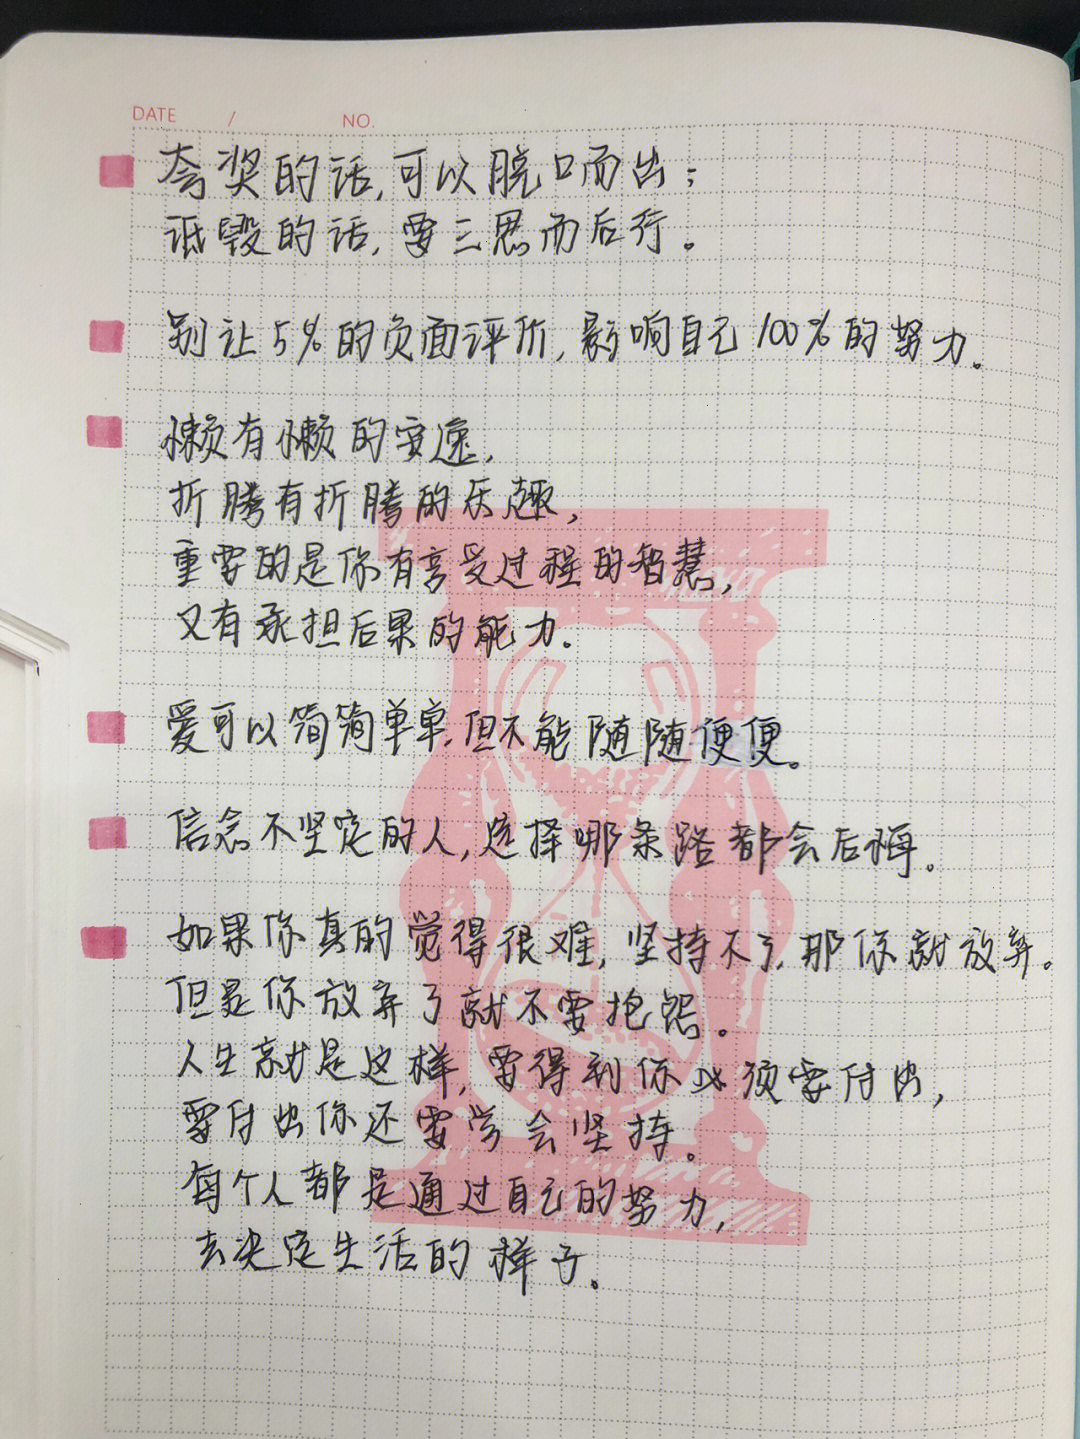 DATE / NO.
夸奖的话,可以脱口而出;
诋毁的话,要三思而后行。
别让5%的负面评价,影响自己100%的努力。
懒有懒的安逸,
折腾有折腾的乐趣,
重要的是你有享受过程的智慧,
又有承担后果的能力.
爱可以简简单单,但不能随随便便。
信念不坚定的人,选择哪条路都会后悔。
如果你真的觉得很难,坚持不了,那你就放弃。
但是你放弃了就不要抱怨。
人生就是这样,要得到你必须要付出,
要付出你还要学会坚持。
每个人都是通过自己的努力,
去决定生活的样子。